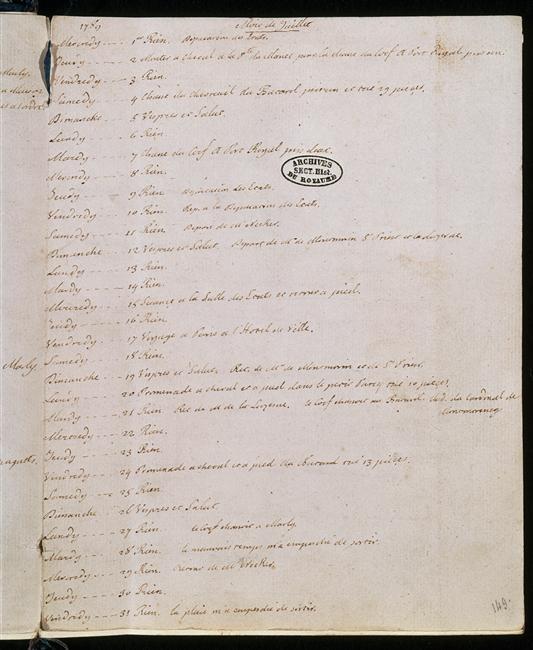 1789 Mois de Juillet
Mercredy 1er Rien. Deputation des Etats.
Jeudy 2 Monter a cheval a la Pte du Maine pour la chasse du Cerf a Port Royal pris un.
Vendredy 3 Rien.
Samedy 4 Chasse du chevreuil du Butard pris un et tué 29 pieces.
Dimanche 5 Vespres et Salut.
Lundy 6 Rien.
Mardy 7 Chasse du Cerf a Port Royal pris deux.
Mercredy 8 Rien.
Jeudy 9 Rien. Deputation des Etats.
Vendredy 10 Rien. Rep. a la Deputation des Etats.
Samedy 11 Rien. Depart de M. Necker.
Dimanche 12 Vespres et Salut. Depart de Mrs de Montmorin St Priest et la Luzerne.
Lundy 13 Rien.
Mardy 14 Rien.
Mercredy 15 Seance a la Salle des Etats et retour a pied.
Jeudy 16 Rien.
Vendredy 17 Voyage a Paris a l'Hotel de Ville.
Samedy 18 Rien.
Dimanche 19 Vespres et Salut. Ret. de Mrs de Montmorin et de St Priest.
Lundy 20 Promenade a cheval et a pied dans le petit Parc tué 10 pieces.
Mardy 21 Rien. Ret de M. de la Luzerne. le Cerf chassoit au Butard. du Cardinal de
Montmorency
Mercredy 22 Rien.
Jeudy 23 Rien.
Vendredy 24 Promenade a cheval et a pied au Butard tué 13 pieces.
Samedy 25 Rien
Dimanche 26 Vespres et Salut
Lundy 27 Rien. le Cerf chassoit a Marly.
Mardy 28 Rien. le mauvais temps m'a empeché de sortir.
Mercredy 29 Rien. Retour de M. Necker.
Jeudy 30 Rien.
Vendredy 31 Rien. la pluie m'a empeché de sortir.
ARCHIVES
SECT. HIST.
DU ROYAUME
Marly.
149.